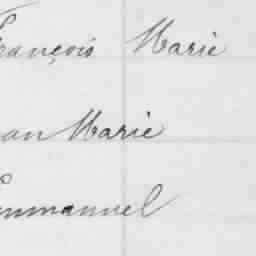 François Marie
ean Marie
Emmanuel